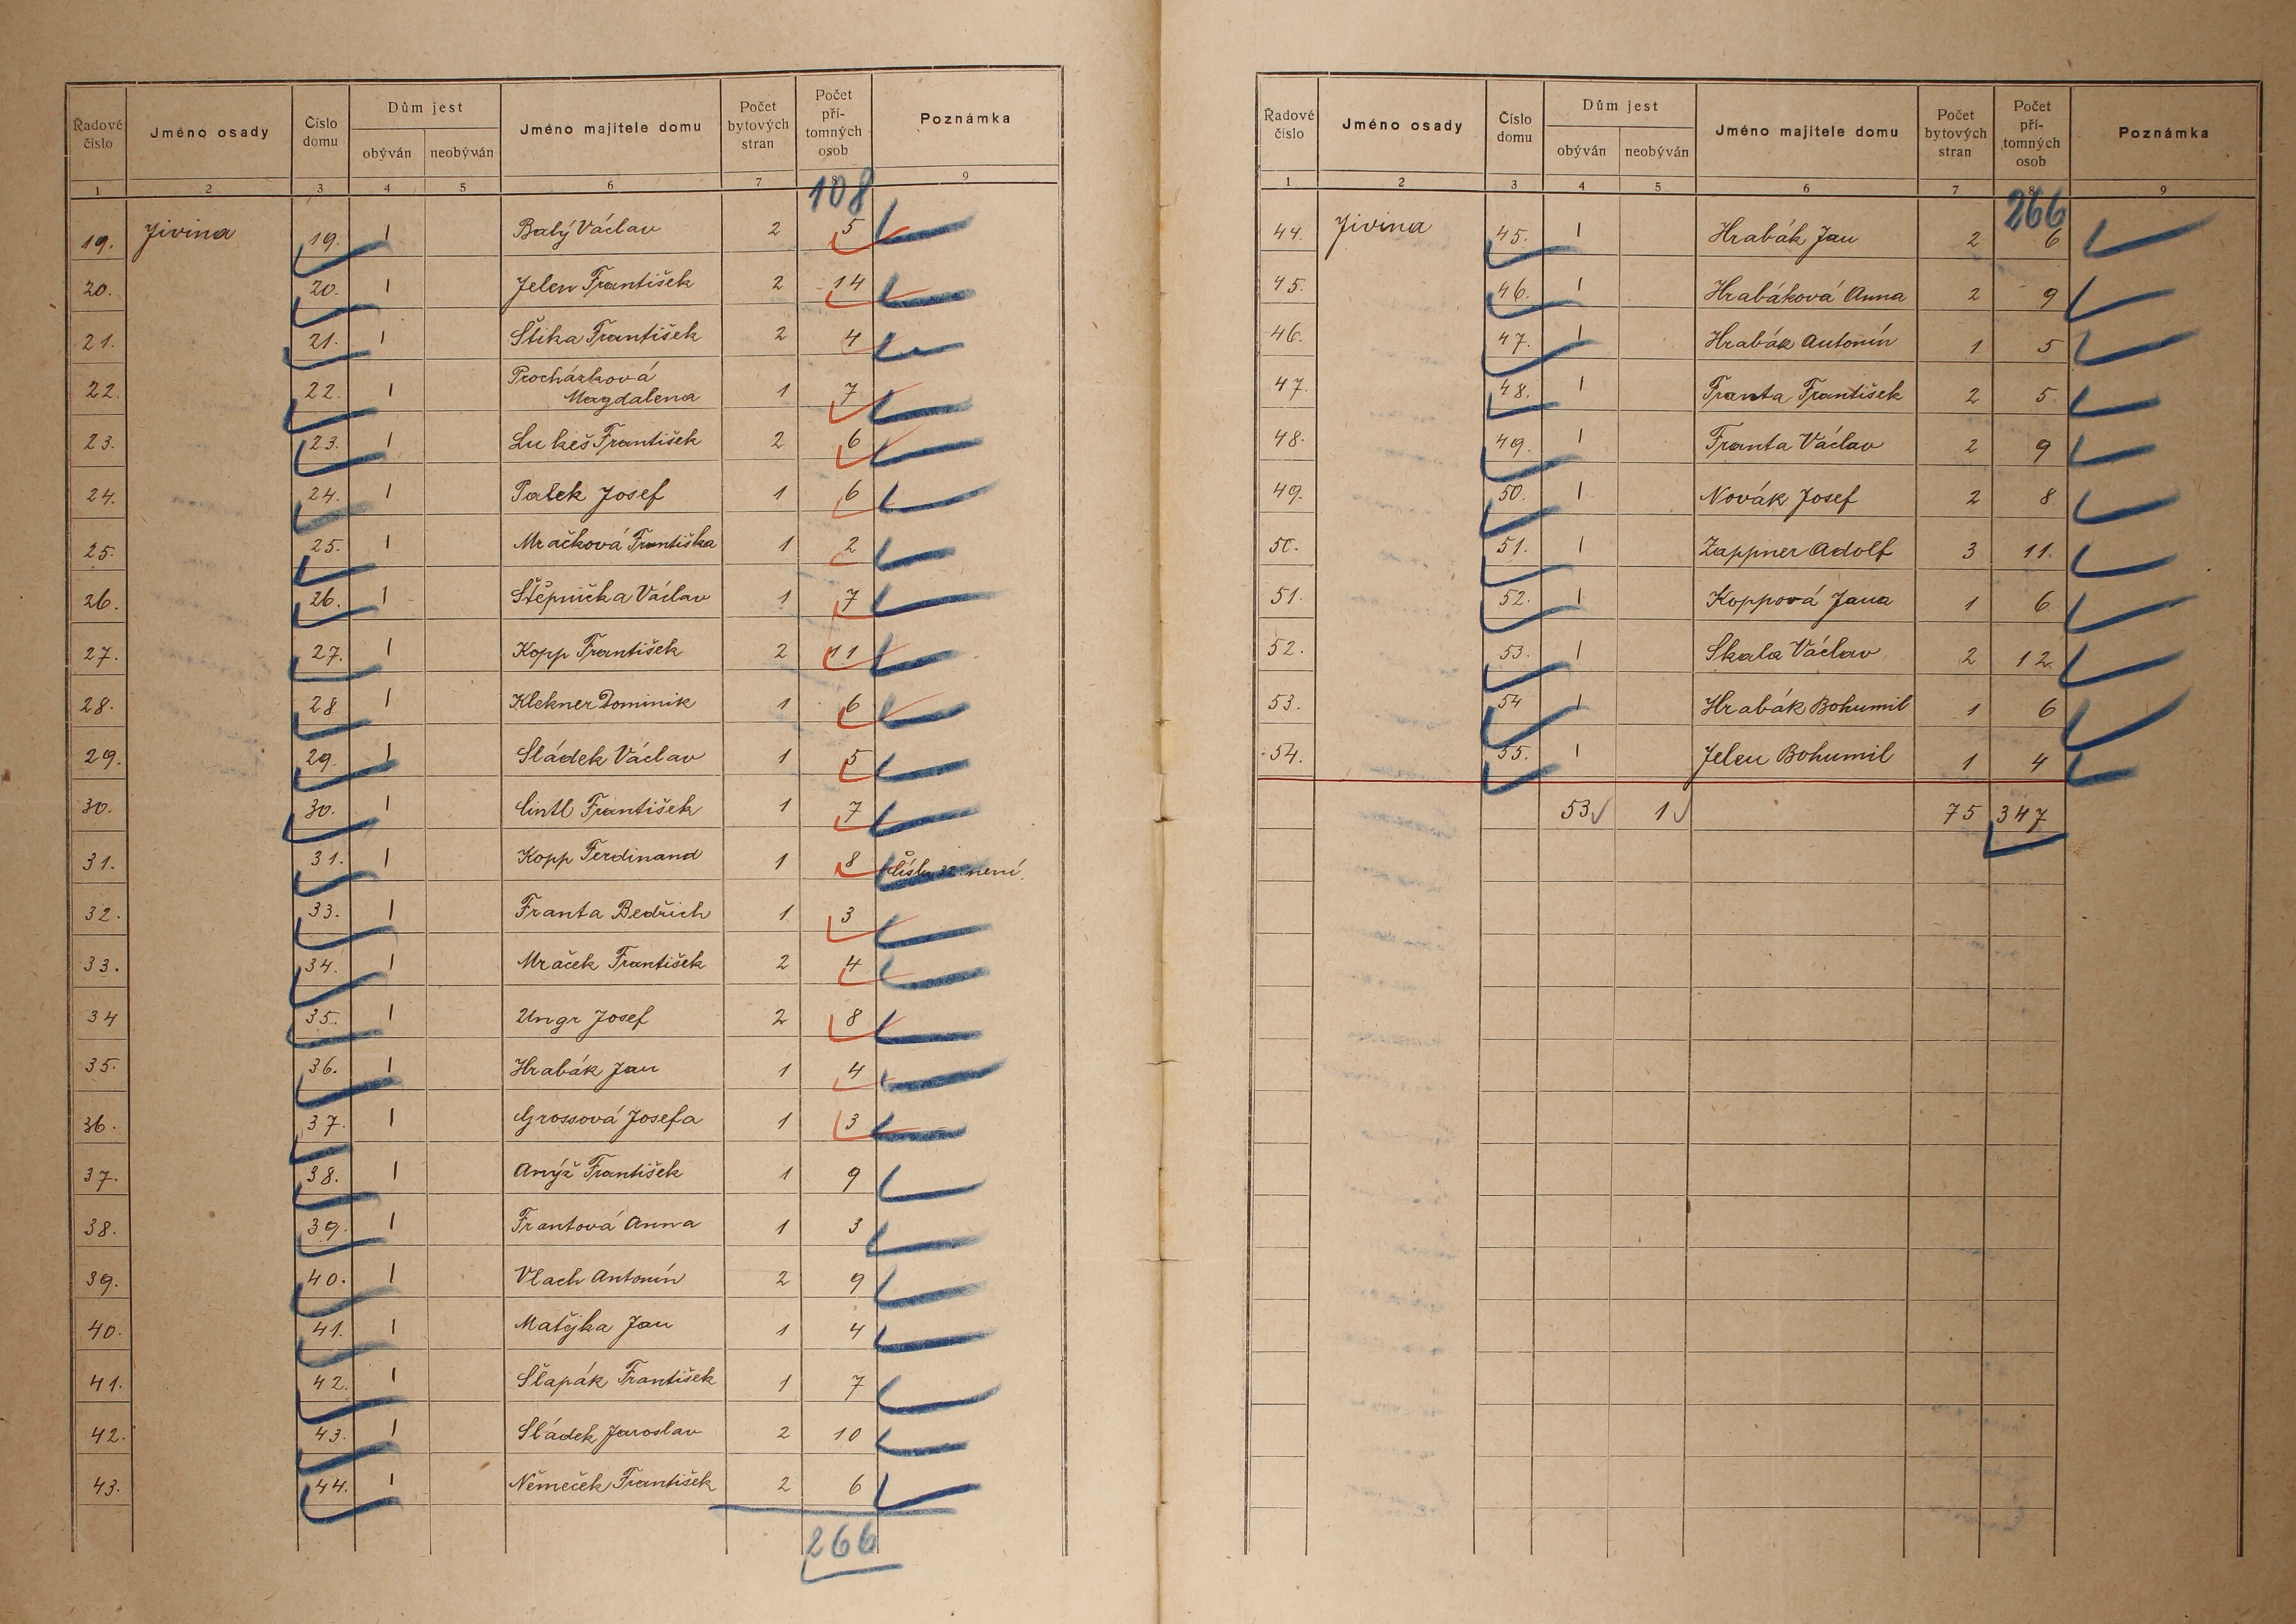 Řadové číslo | Jméno osady | Číslo domu | Dům jest obýván | Dům jest neobýván | Jméno majitele domu | Počet bytových stran | Počet pří- tomných osob | Poznámka
1 | 2 | 3 | 4 | 5 | 6 | 7 | 8 | 9
108
19. | Jivina | 19. | 1 | Balý Václav | 2 | 5
20. | 20. | 1 | Jelen František | 2 | 14
21. | 21. | 1 | Štika František | 2 | 4
22. | 22. | 1 | Procházková Magdalena | 1 | 7
23. | 23. | 1 | Lukeš František | 2 | 6
24. | 24. | 1 | Palek Josef | 1 | 6
25. | 25. | 1 | Mračková Františka | 1 | 2
26. | 26. | 1 | Štěpnička Václav | 1 | 7
27. | 27. | 1 | Kopp František | 2 | 11
28. | 28 | 1 | Klekner Dominik | 1 | 6
29. | 29. | 1 | Sládek Václav | 1 | 5
30. | 30. | 1 | Cintl František | 1 | 7
31. | 31. | 1 | Kopp Ferdinand | 1 | 8 | Číslo 32. není.
32. | 33. | 1 | Franta Bedřich | 1 | 3
33. | 34. | 1 | Mraček František | 2 | 4
34 | 35. | 1 | Ungr Josef | 2 | 8
35. | 36. | 1 | Hrabák Jan | 1 | 4
36. | 37. | 1 | Grossová Josefa | 1 | 3
37. | 38. | 1 | Anýž František | 1 | 9
38. | 39. | 1 | Frantová Anna | 1 | 3
39. | 40. | 1 | Vlach Antonín | 2 | 9
40. | 41. | 1 | Matýka Jan | 1 | 4
41. | 42. | 1 | Slapák František | 1 | 7
42. | 43. | 1 | Sládek Jaroslav | 2 | 10
43. | 44. | 1 | Němeček František | 2 | 6
266
Řadové číslo | Jméno osady | Číslo domu | Dům jest obýván | Dům jest neobýván | Jméno majitele domu | Počet bytových stran | Počet pří- tomných osob | Poznámka
1 | 2 | 3 | 4 | 5 | 6 | 7 | 8 | 9
266
44. | Jivina | 45. | 1 | Hrabák Jan | 2 | 6
45. | 46. | 1 | Hrabáková Anna | 2 | 9
46. | 47. | 1 | Hrabák Antonín | 1 | 5
47. | 48. | 1 | Franta František | 2 | 5
48. | 49. | 1 | Franta Václav | 2 | 9
49. | 50. | 1 | Novák Josef | 2 | 8
50. | 51. | 1 | Zappner Adolf | 3 | 11.
51. | 52. | 1 | Koppová Jana | 1 | 6
52. | 53. | 1 | Skala Václav | 2 | 12.
53. | 54 | 1 | Hrabák Bohumil | 1 | 6
54. | 55. | 1 | Jelen Bohumil | 1 | 4
53 | 1 | 75 | 347